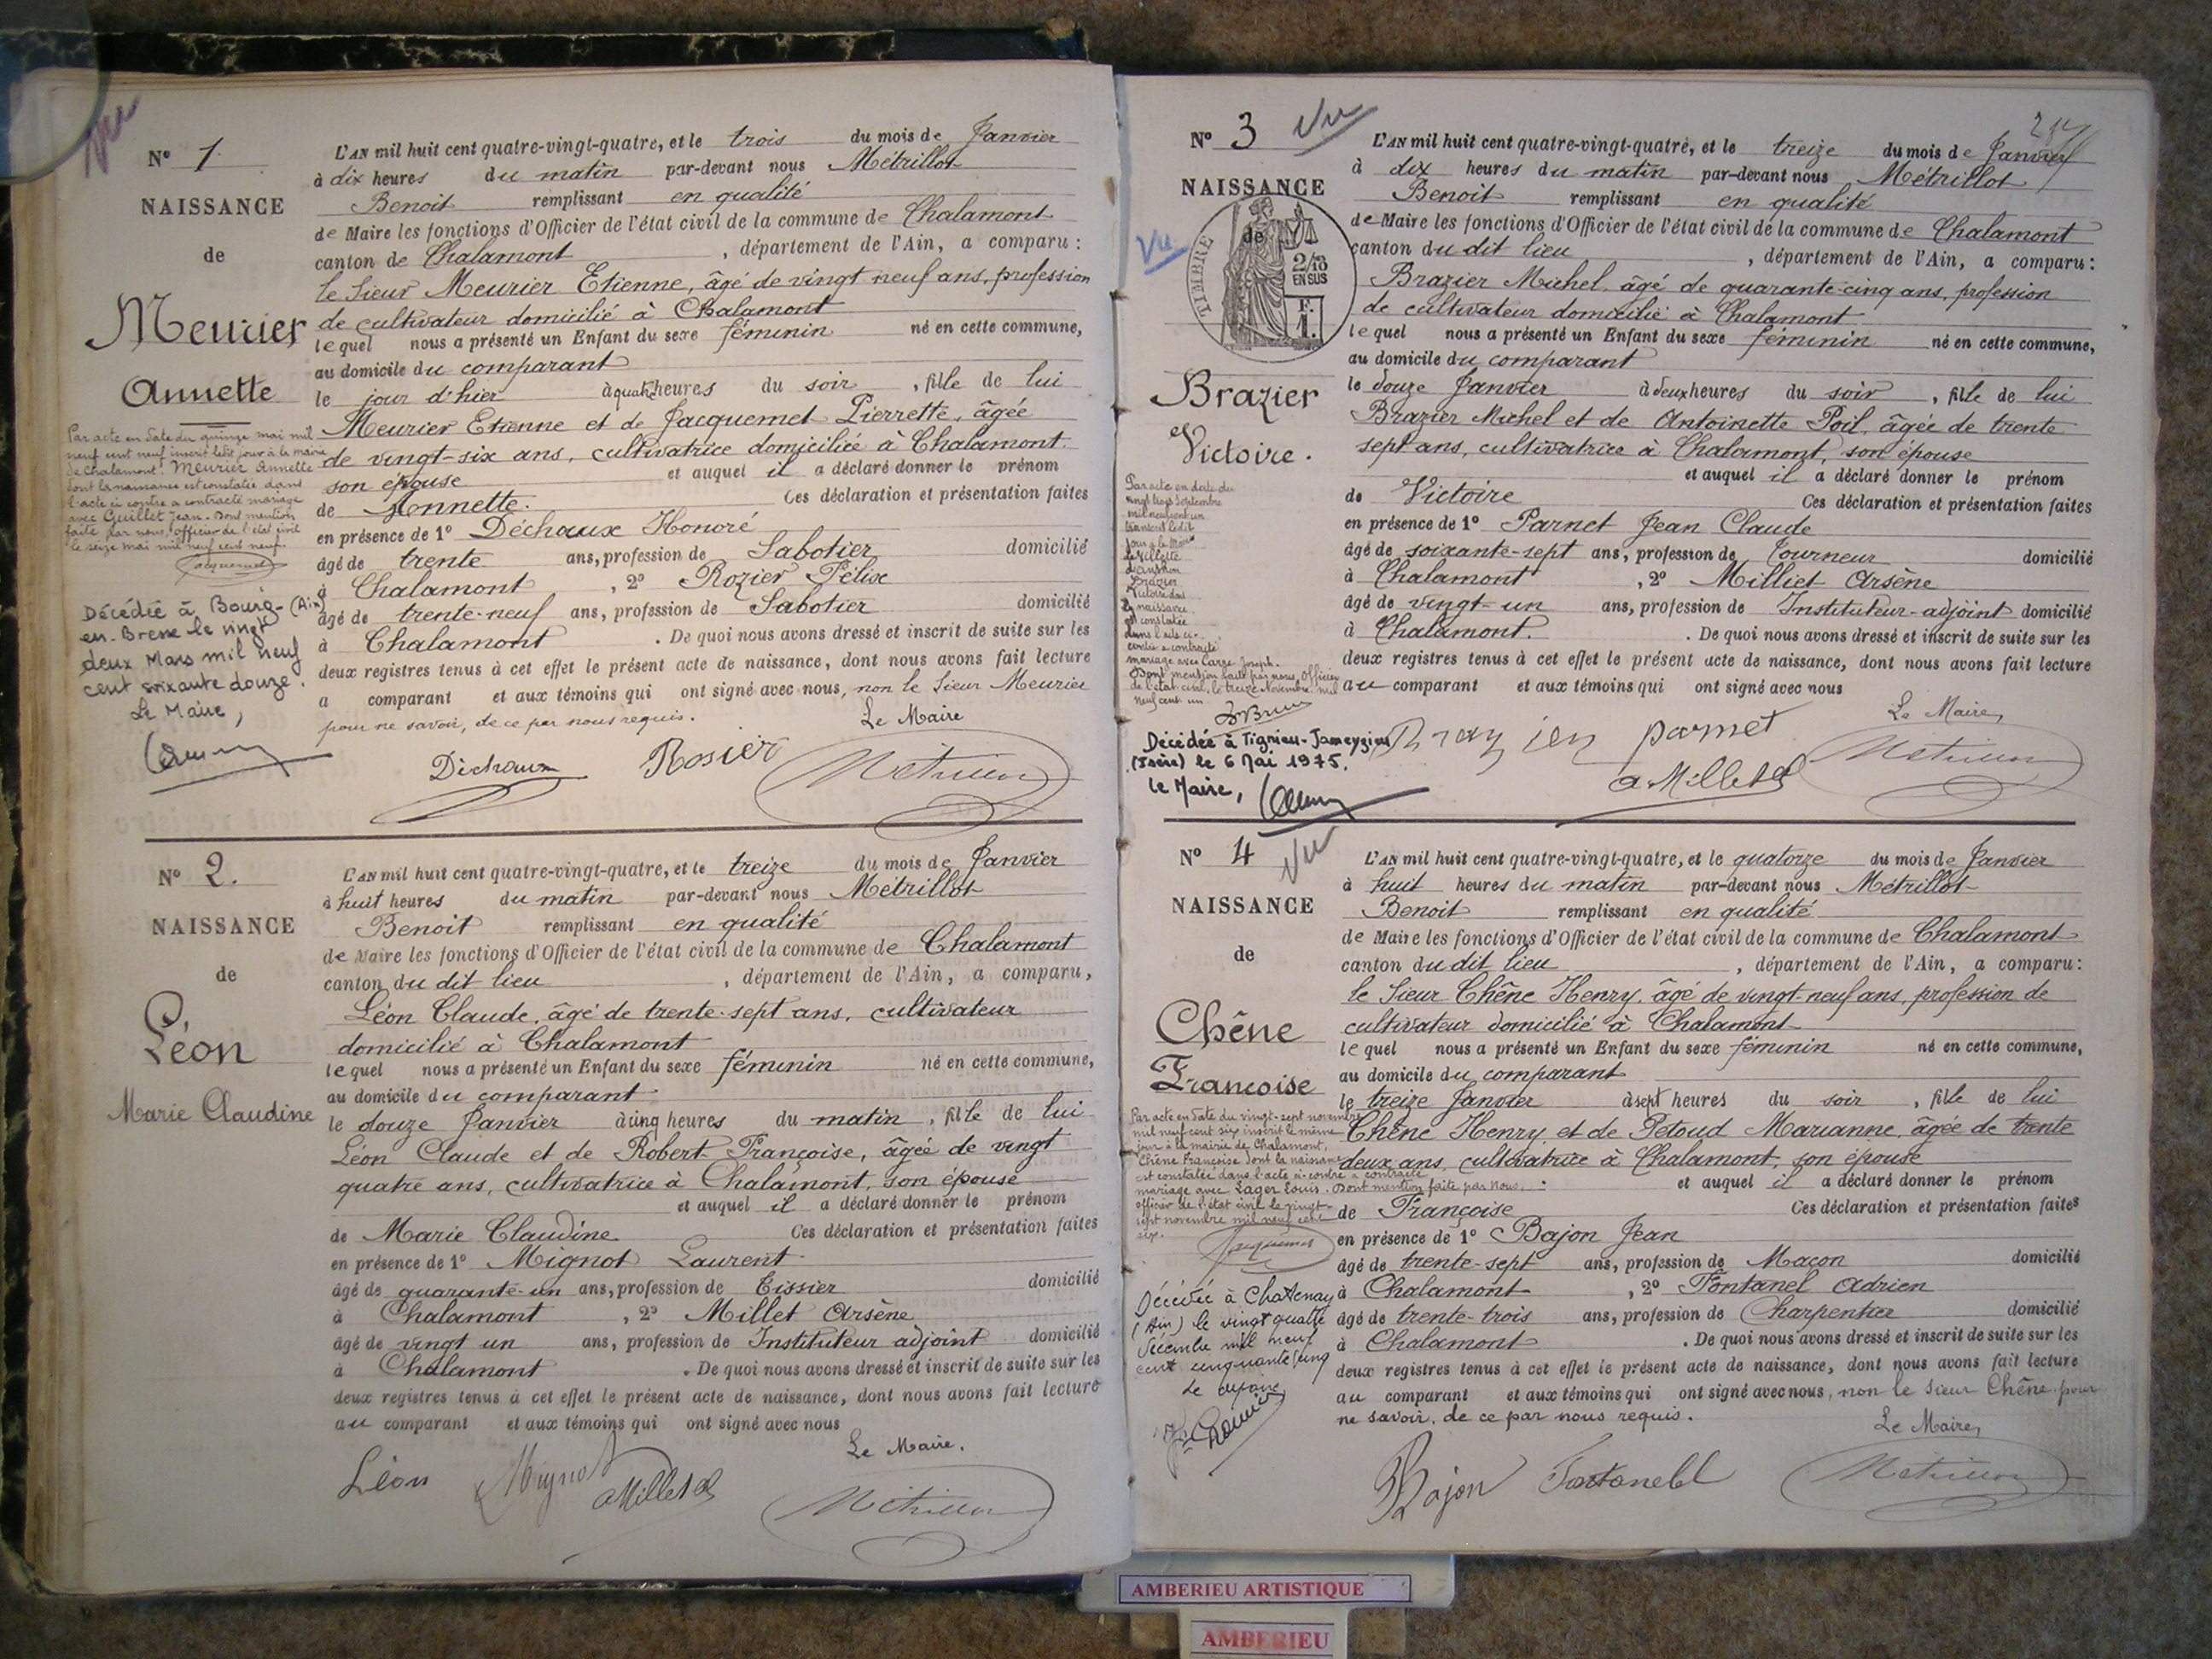 Vu
N° 1.
NAISSANCE
de
Meurier
Annette
Par acte en date du quinze mai mil
neuf cent neuf inscrit ledit jour à la mairie
de Chalamont. Meurier Annette
dont la naissance est constatée dans
l'acte ci contre a contracté mariage
avec Guillet Jean. Dont mention
faite par nous, officier de l'état civil
le seize mai mil neuf cent neuf.
Jacquemet
Décédée à Bourg- (Ain)
en-Bresse le vingt
deux Mars mil neuf
cent soixante douze.
Le Maire,
L'AN mil huit cent quatre-vingt-quatre, et le trois du mois de Janvier
à dix heures du matin par-devant nous Métrillot
Benoit remplissant en qualité
de Maire les fonctions d'Officier de l'état civil de la commune de Chalamont
canton de Chalamont , département de l'Ain, a comparu :
le Sieur Meurier Etienne, âgé de vingt neuf ans, profession
de cultivateur domicilié à Chalamont
lequel nous a présenté un Enfant du sexe féminin né en cette commune,
au domicile du comparant
le jour d'hier à quatre heures du soir , fille de lui
Meurier Etienne et de Jacquemet Pierrette, âgée
de vingt-six ans, cultivatrice domiciliée à Chalamont
son épouse et auquel il a déclaré donner le prénom
de Annette. Ces déclaration et présentation faites
en présence de 1° Déchaux Honoré
âgé de trente ans, profession de Sabotier domicilié
à Chalamont , 2° Rozier Félix
âgé de trente-neuf ans, profession de Sabotier domicilié
à Chalamont . De quoi nous avons dressé et inscrit de suite sur les
deux registres tenus à cet effet le présent acte de naissance, dont nous avons fait lecture
a comparant et aux témoins qui ont signé avec nous, non le Sieur Meurier
pour ne savoir, de ce par nous requis.
Le Maire
Dèchaux Rosier Métrillot
N° 2.
NAISSANCE
de
Léon
Marie Claudine
L'AN mil huit cent quatre-vingt-quatre, et le treize du mois de Janvier
à huit heures du matin par-devant nous Métrillot
Benoit remplissant en qualité
de Maire les fonctions d'Officier de l'état civil de la commune de Chalamont
canton du dit lieu , département de l'Ain, a comparu,
Léon Claude, âgé de trente-sept ans, cultivateur
domicilié à Chalamont
lequel nous a présenté un Enfant du sexe féminin né en cette commune,
au domicile du comparant
le douze Janvier à cinq heures du matin , fille de lui
Léon Claude et de Robert Françoise, âgée de vingt
quatre ans, cultivatrice à Chalamont, son épouse
et auquel il a déclaré donner le prénom
de Marie Claudine Ces déclaration et présentation faites
en présence de 1° Mignot Laurent
âgé de quarante-un ans, profession de Tissier domicilié
à Chalamont , 2° Millet Arsène
âgé de vingt un ans, profession de Instituteur adjoint domicilié
à Chalamont . De quoi nous avons dressé et inscrit de suite sur les
deux registres tenus à cet effet le présent acte de naissance, dont nous avons fait lecture
au comparant et aux témoins qui ont signé avec nous
Le Maire.
Léon Mignot A Millet Métrillot
N° 3 Vu
NAISSANCE
de
TIMBRE
2/10
EN SUS
F.
1.
Vu
Brazier
Victoire.
Par acte en date du
vingt trois Septembre
mil neuf cent un
transcrit ledit
jour à la Mairie
Brazier
Victoire dont
la naissance
est constatée
dans l'acte ci-
contre a contracté
mariage avec Carge Joseph.
Dont mention faite par nous, Officier
de l'état civil, le treize Novembre mil
neuf cent un
Décédée à Tignieu-Jameyzieu
(Isère) le 6 Mai 1975.
Le Maire,
L'AN mil huit cent quatre-vingt-quatre, et le treize du mois de Janvier
à dix heures du matin par-devant nous Métrillot
Benoit remplissant en qualité
de Maire les fonctions d'Officier de l'état civil de la commune de Chalamont
canton du dit lieu , département de l'Ain, a comparu :
Brazier Michel, âgé de quarante-cinq ans, profession
de cultivateur domicilié à Chalamont
lequel nous a présenté un Enfant du sexe féminin né en cette commune,
au domicile du comparant
le douze Janvier à deux heures du soir , fille de lui
Brazier Michel et de Antoinette Poil, âgée de trente
sept ans, cultivatrice à Chalamont, son épouse
et auquel il a déclaré donner le prénom
de Victoire Ces déclaration et présentation faites
en présence de 1° Parnet Jean Claude
âgé de soixante-sept ans, profession de Tourneur domicilié
à Chalamont , 2° Milliet Arsène
âgé de vingt-un ans, profession de Instituteur-adjoint domicilié
à Chalamont. . De quoi nous avons dressé et inscrit de suite sur les
deux registres tenus à cet effet le présent acte de naissance, dont nous avons fait lecture
au comparant et aux témoins qui ont signé avec nous
Le Maire,
parnet Métrillot
A Millet
N° 4 Vu
NAISSANCE
de
Chêne
Françoise
Par acte en date du vingt-sept novembre
mil neuf cent six inscrit le même
jour à la mairie de Chalamont,
Chêne Françoise dont la naissance
est constatée dans l'acte ci-contre a contracté
mariage avec Lager Louis. Dont mention faite par nous,
officier de l'état civil le vingt-
sept novembre mil neuf cent
six.
Jacquemet
Décédée à Chatenay
(Ain) le vingt quatre
Décembre mil neuf
cent cinquante cinq
L'AN mil huit cent quatre-vingt-quatre, et le quatorze du mois de Janvier
à huit heures du matin par-devant nous Métrillot
Benoit remplissant en qualité
de Maire les fonctions d'Officier de l'état civil de la commune de Chalamont
canton du dit lieu , département de l'Ain, a comparu :
le Sieur Chêne Henry, âgé de vingt-neuf ans, profession de
cultivateur domicilié à Chalamont
lequel nous a présenté un Enfant du sexe féminin né en cette commune,
au domicile du comparant
le treize Janvier à sept heures du soir , fille de lui
Chêne Henry et de Petoud Marianne, âgée de trente
deux ans, cultivatrice à Chalamont, son épouse
et auquel il a déclaré donner le prénom
de Françoise Ces déclaration et présentation faites
en présence de 1° Bajon Jean
âgé de trente-sept ans, profession de Maçon domicilié
à Chalamont , 2° Fontanel Adrien
âgé de trente-trois ans, profession de Charpentier domicilié
à Chalamont . De quoi nous avons dressé et inscrit de suite sur les
deux registres tenus à cet effet le présent acte de naissance, dont nous avons fait lecture
au comparant et aux témoins qui ont signé avec nous, non le Sieur Chêne pour
ne savoir, de ce par nous requis.
Le Maire,
Bajon Fontanel Métrillot
AMBERIEU ARTISTIQUE
AMBERIEU